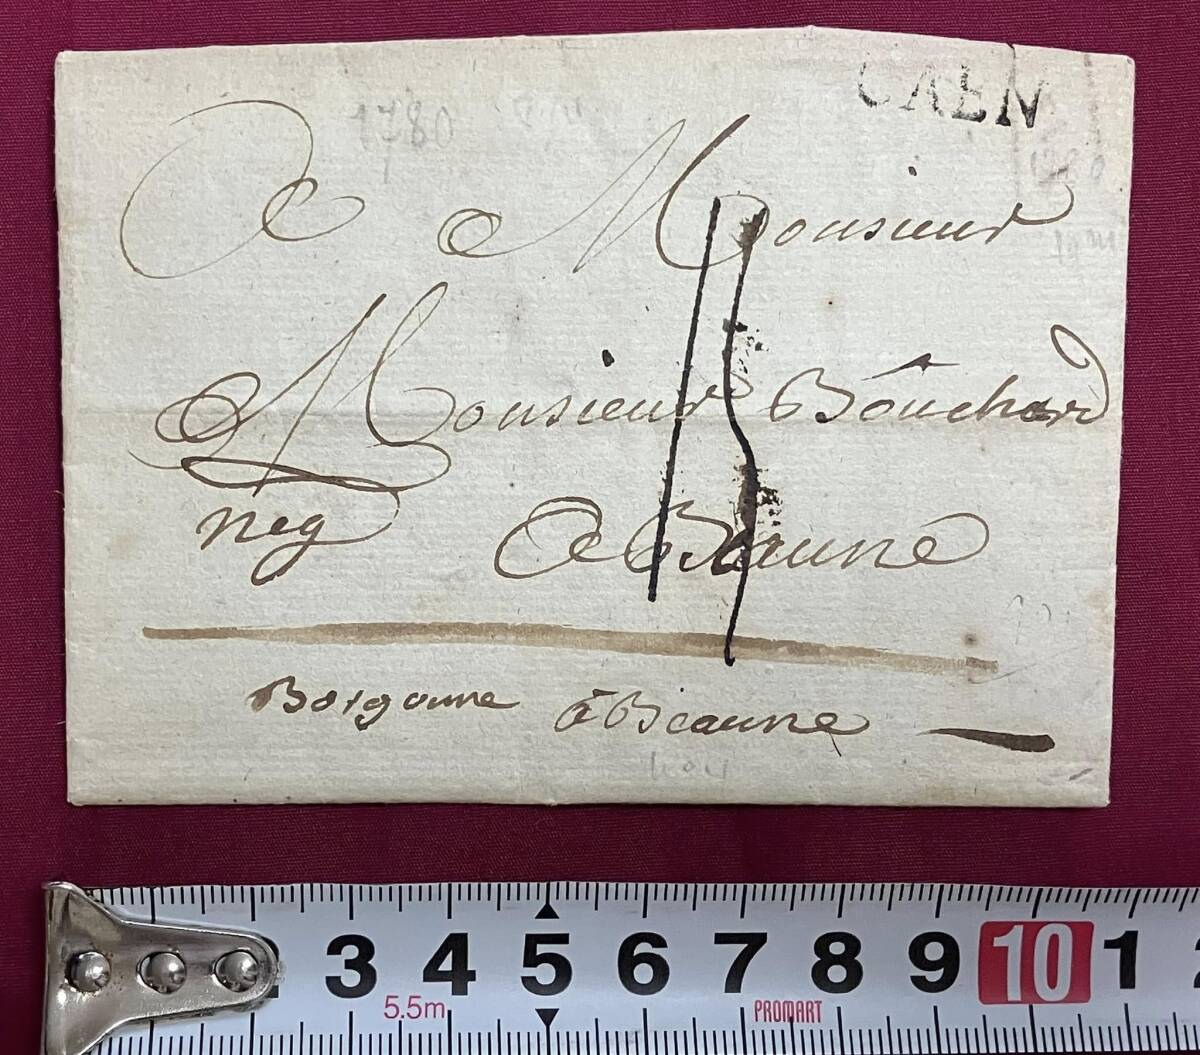 CAEN
1780
A Monsieur
Monsieur Bouchard
neg A Beaune
Borgonne à Beaune
3 4 5 6 7 8 9 10 1
5.5m PROMART